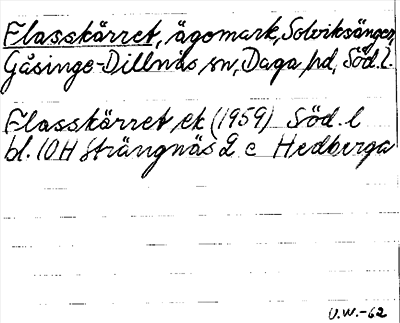 Flasskärret, ägomark, Solviksängen,
Gåsinge-Dillnäs sn, Daga hd, Söd. l.
Flasskärret ek (1959) Söd. l
bl. 10H Strängnäs 2 c Hedberga
U.W.-62